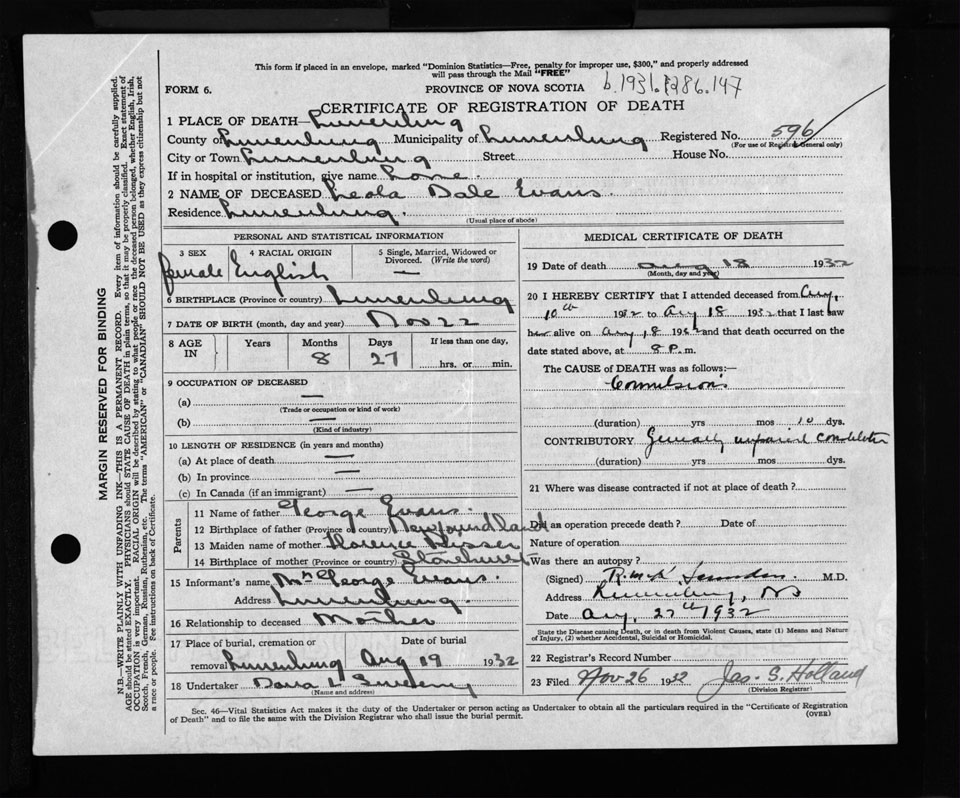 This form if placed in an envelope, marked "Dominion Statistics—Free, penalty for improper use, $300," and properly addressed
will pass through the Mail "FREE"
FORM 6.
PROVINCE OF NOVA SCOTIA
b.1931.
286.147
CERTIFICATE OF REGISTRATION OF DEATH
1 PLACE OF DEATH—Lunenburg
County of Lunenburg Municipality of Lunenburg Registered No. 596
(For use of Registrar General only)
City or Town Lunenburg Street House No.
If in hospital or institution, give name
2 NAME OF DECEASED Leola Dale Evans
Residence Lunenburg.
(Usual place of abode)
PERSONAL AND STATISTICAL INFORMATION
3 SEX 4 RACIAL ORIGIN 5 Single, Married, Widowed or Divorced. (Write the word)
female English —
6 BIRTHPLACE (Province or country) Lunenburg
7 DATE OF BIRTH (month, day and year) Nov 22
8 AGE IN Years Months 8 Days 27 If less than one day, hrs. or min.
9 OCCUPATION OF DECEASED
(a) —
(Trade or occupation or kind of work)
(b) —
(Kind of industry)
10 LENGTH OF RESIDENCE (in years and months)
(a) At place of death —
(b) In province —
(c) In Canada (if an immigrant) —
Parents
11 Name of father George Evans.
12 Birthplace of father (Province or country) Newfoundland
13 Maiden name of mother Florence
14 Birthplace of mother (Province or country) Stonehurst
15 Informant's name Mrs George Evans.
Address Lunenburg.
16 Relationship to deceased Mother
17 Place of burial, cremation or removal Lunenburg Date of burial Aug 19 1932
18 Undertaker
(Name and address)
MEDICAL CERTIFICATE OF DEATH
19 Date of death Aug 18 1932
(Month, day and year)
20 I HEREBY CERTIFY that I attended deceased from Aug.
10th 1932 to Aug 18 1932 that I last saw
her alive on Aug, 18 1932 and that death occurred on
date stated above, at 8 P.m.
The CAUSE of DEATH was as follows:—
Convulsions
(duration) yrs mos 10 dys.
CONTRIBUTORY Generally impaired
(duration) yrs mos dys.
21 Where was disease contracted if not at place of death?
Did an operation precede death? Date of
Nature of operation
Was there an autopsy?
(Signed) M.D.
Address Lunenburg, NS
Date Aug, 27th 1932
State the Disease causing Death, or in death from Violent Causes, state (1) Means and Nature
of Injury, (2) whether Accidental, Suicidal or Homicidal.
22 Registrar's Record Number
23 Filed Nov 26 1932 Jas. S. Holland
(Division Registrar)
Sec. 46—Vital Statistics Act makes it the duty of the Undertaker or person acting as Undertaker to obtain all the particulars required in the "Certificate of Registration
of Death" and to file the same with the Division Registrar who shall issue the burial permit.
(OVER)
MARGIN RESERVED FOR BINDING
N.B.—WRITE PLAINLY WITH UNFADING INK—THIS IS A PERMANENT RECORD. Every item of information should be carefully supplied.
AGE should be stated EXACTLY. PHYSICIANS should STATE CAUSE OF DEATH in plain terms, so that it may be properly classified. Exact statement of
OCCUPATION is very important. RACIAL ORIGIN will be described by stating to what people or race the deceased person belonged, whether English, Irish,
Scotch, French, German, Russian, Ruthenian, etc. The terms "AMERICAN" or "CANADIAN" SHOULD NOT BE USED as they express citizenship but not
a race or people. See instructions on back of Certificate.